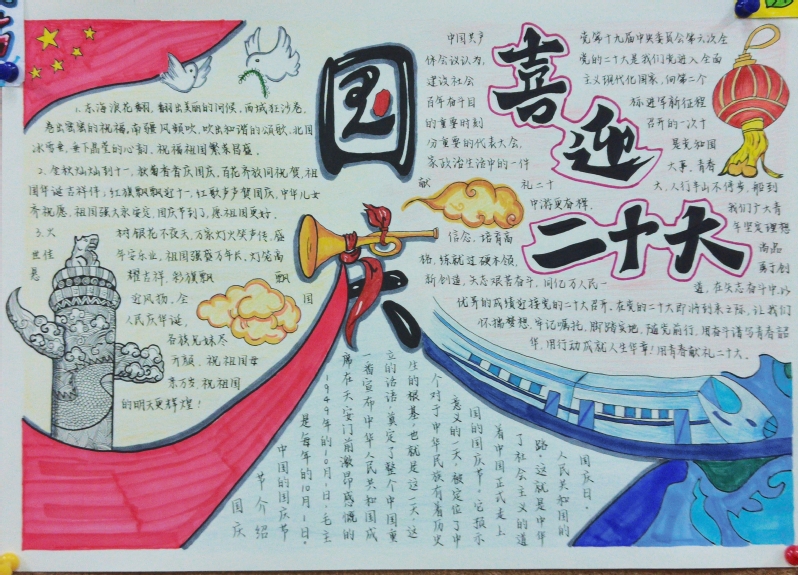 国庆
喜迎
二十大
1.东海浪花翻,翻出美丽的问候,西域狂沙卷,
卷出蜜蜜的祝福,南疆风频吹,吹出和谐的颂歌,北国
冰雪垂,垂下晶莹的心韵,祝福祖国繁荣昌盛。
2.金秋灿灿到十一,秋菊香香庆国庆,百花齐放同祝贺,祖
国年诞吉祥伴,红旗飘飘迎十一,红歌声声贺国庆,中华儿女
齐祝愿,祖国强大永安定,国庆节到了,愿祖国更好。
3.火树银花不夜天,万家灯火笑声传,盛
世佳年乐业,祖国强盛万年长,灯笼高
悬耀吉祥,彩旗飘飘
迎风扬,全国
人民庆华诞,
各族兄妹尽
开颜,祝祖国母
亲万岁,祝祖国
的明天更辉煌!
中国共产党第十九届中央委员会第六次全
体会议认为,党的二十大是我们党进入全面
建设社会主义现代化国家,向第二个
百年奋斗目标进军新征程
的重要时刻召开的一次十
分重要的代表大会,是党和国
家政治生活中的一件大事,青春
献礼二十大,人行半山不停步,船到
中游更奋楫,我们广大青
年坚定理想
信念,培育高尚品
格,练就过硬本领,勇于创
新创造,矢志艰苦奋斗,同亿万人民一道,在矢志奋斗中以
优异的成绩迎接党的二十大召开。在党的二十大即将到来之际,让我们
怀揣梦想,牢记嘱托,脚踏实地,随党前行,用奋斗谱写青春韶
华,用行动成就人生华章!用青春献礼二十大。
国庆
节介绍
中国的国庆节
是每年的10月1日。
1949年的10月1日,毛主
席在天安门前激昂感慨的
一番宣布中华人民共和国成
立的话语,奠定了整个中国重
生的根基,也就是这一天,这
个对于中华民族有着历史
意义的一天,被定位了中
国的国庆节。它预示
着中国正式走上
了社会主义的道
路。这就是中华
人民共和国的
国庆日。